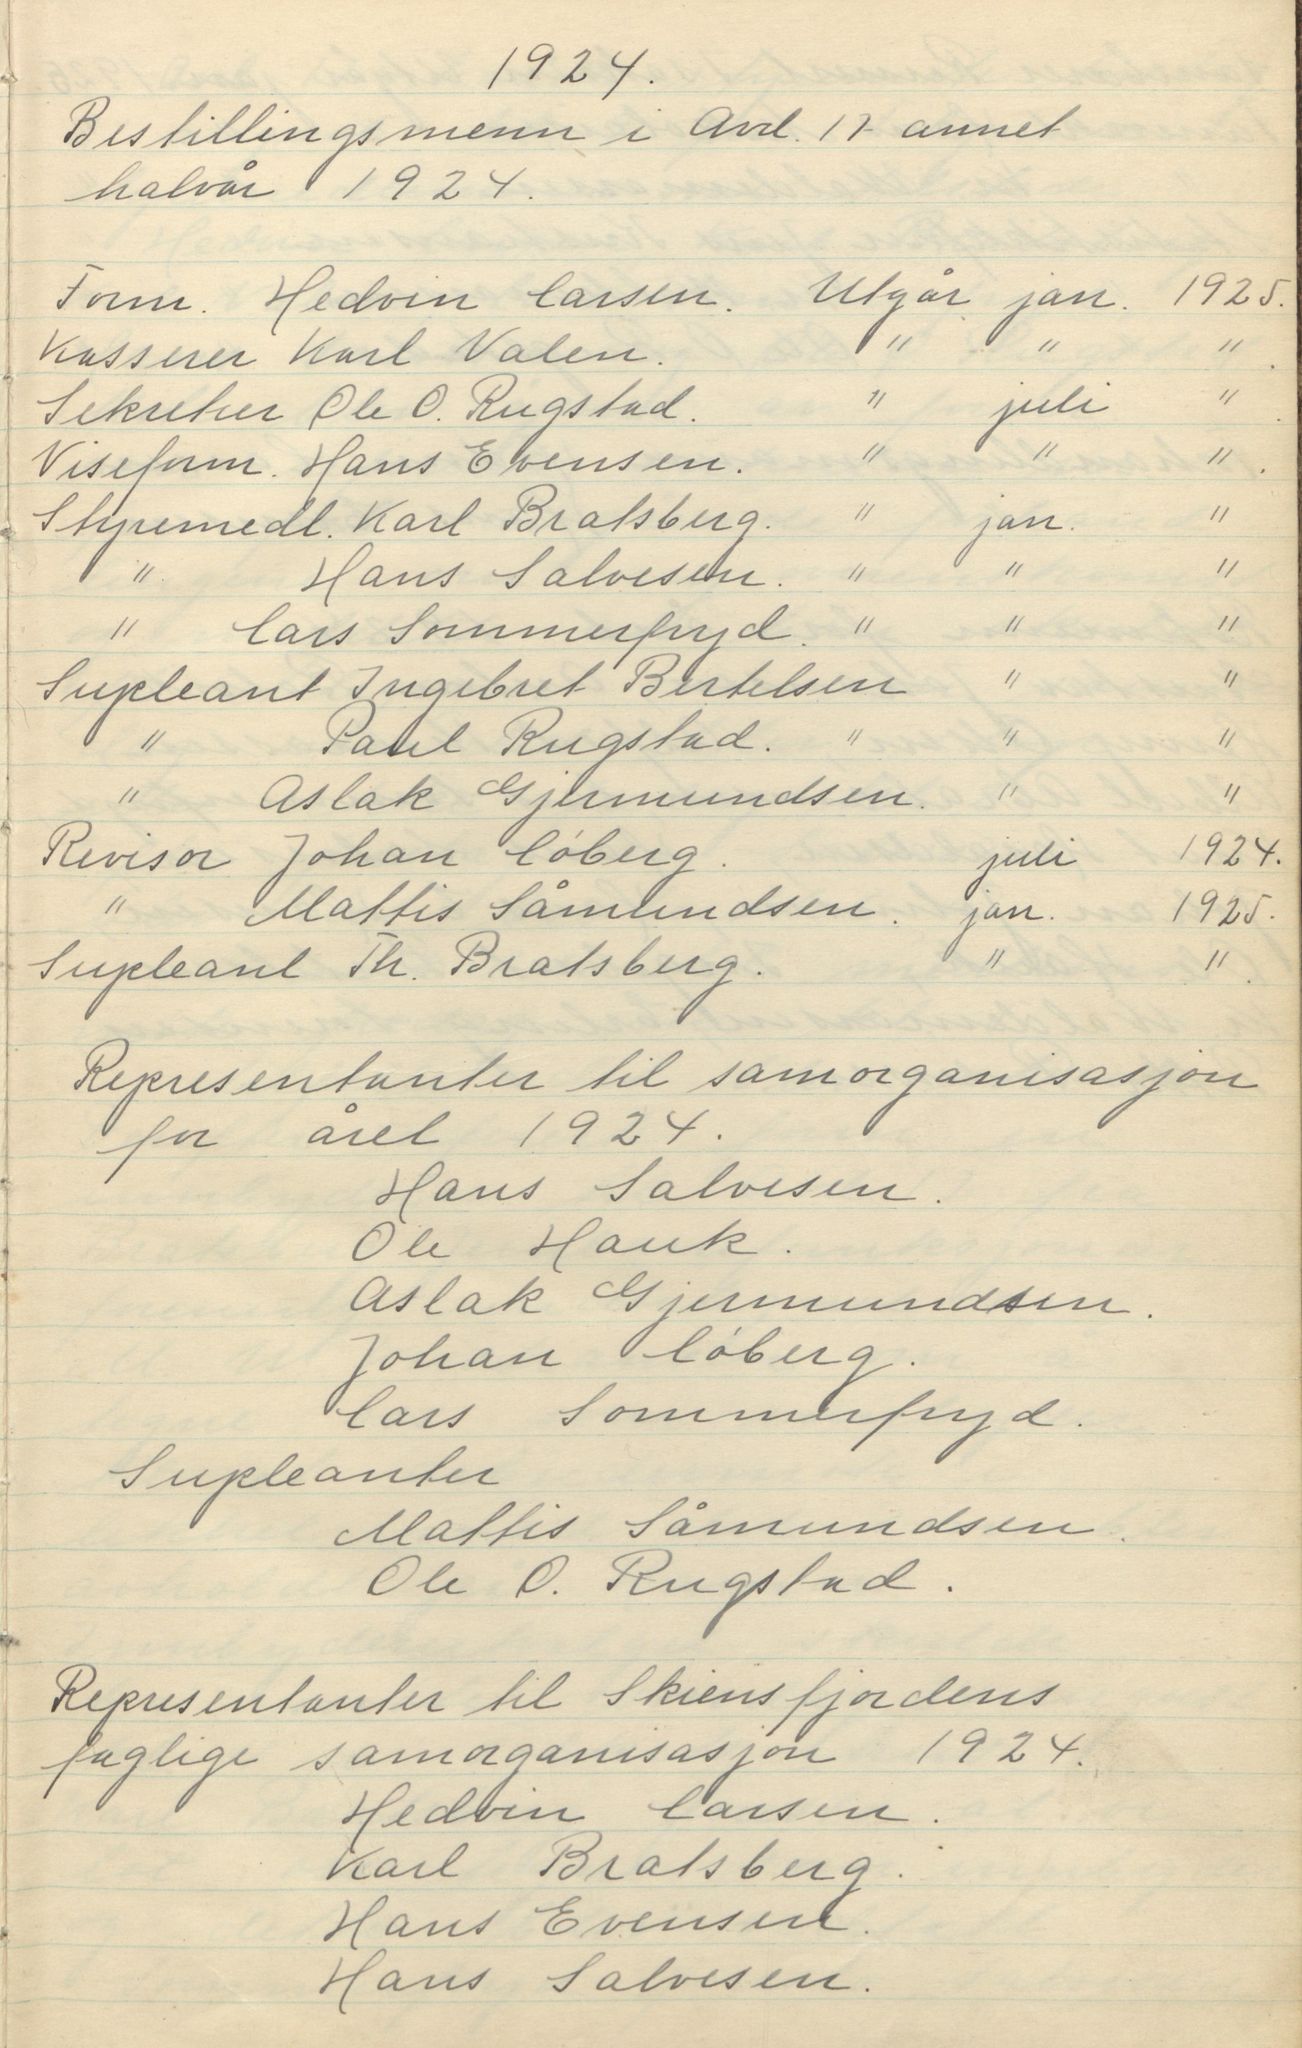 1924.
Bestillingsmenn i Avd. 17 annet
halvår 1924.
Form. Hedvin Larsen. Utgår jan. 1925.
Kasserer Karl Valen. " " ".
Sekretær Ole O. Rugstad. " juli ".
Viseform. Hans Evensen. " " ".
Styremedl. Karl Bratsberg. " jan. "
" Hans Salvesen. " " "
" Lars Sommerfryd. " " "
Supleant Ingebret Bertelsen " "
" Paul Rugstad. " " "
" Aslak Gjermundsen. " "
Revisor Johan Löberg. juli 1924.
" Mattis Såmundsen. jan. 1925.
Supleant Th. Bratsberg. " ".
Representanter til samorganisasjon
for året 1924.
Hans Salvesen.
Ole Hauk.
Aslak Gjermundsen.
Johan Löberg.
Lars Sommerfryd.
Supleanter
Mattis Såmundsen.
Ole O. Rugstad.
Representanter til Skiensfjordens
faglige samorganisasjon 1924.
Hedvin Larsen.
Karl Bratsberg.
Hans Evensen.
Hans Salvesen.